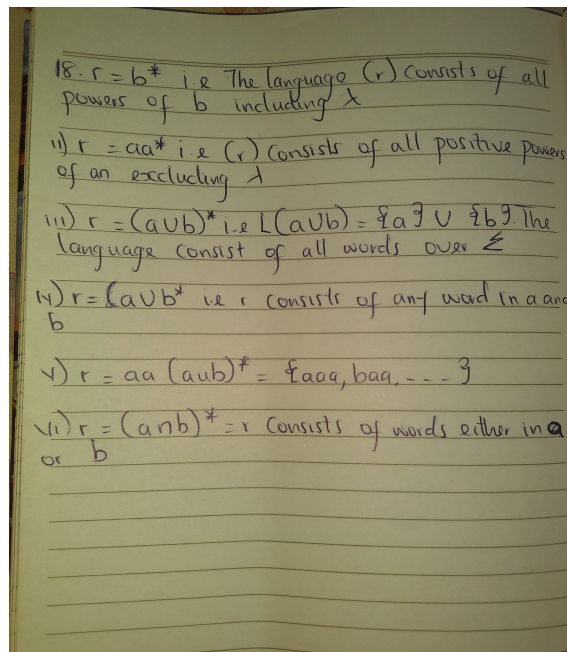 18. r = b* i.e The language (r) consists of all
powers of b including λ
ii) r = aa* i.e (r) consists of all positive powers
of an excluding λ
iii) r = (a∪b)* i.e L(a∪b) = {a} ∪ {b}. The
language consist of all words over Σ
iv) r = (a∪b* i.e r consists of any word in a and
b
v) r = aa (a∪b)* = {aaa, baa, - - - }
vi) r = (a∩b)* = r consists of words either in a
or b